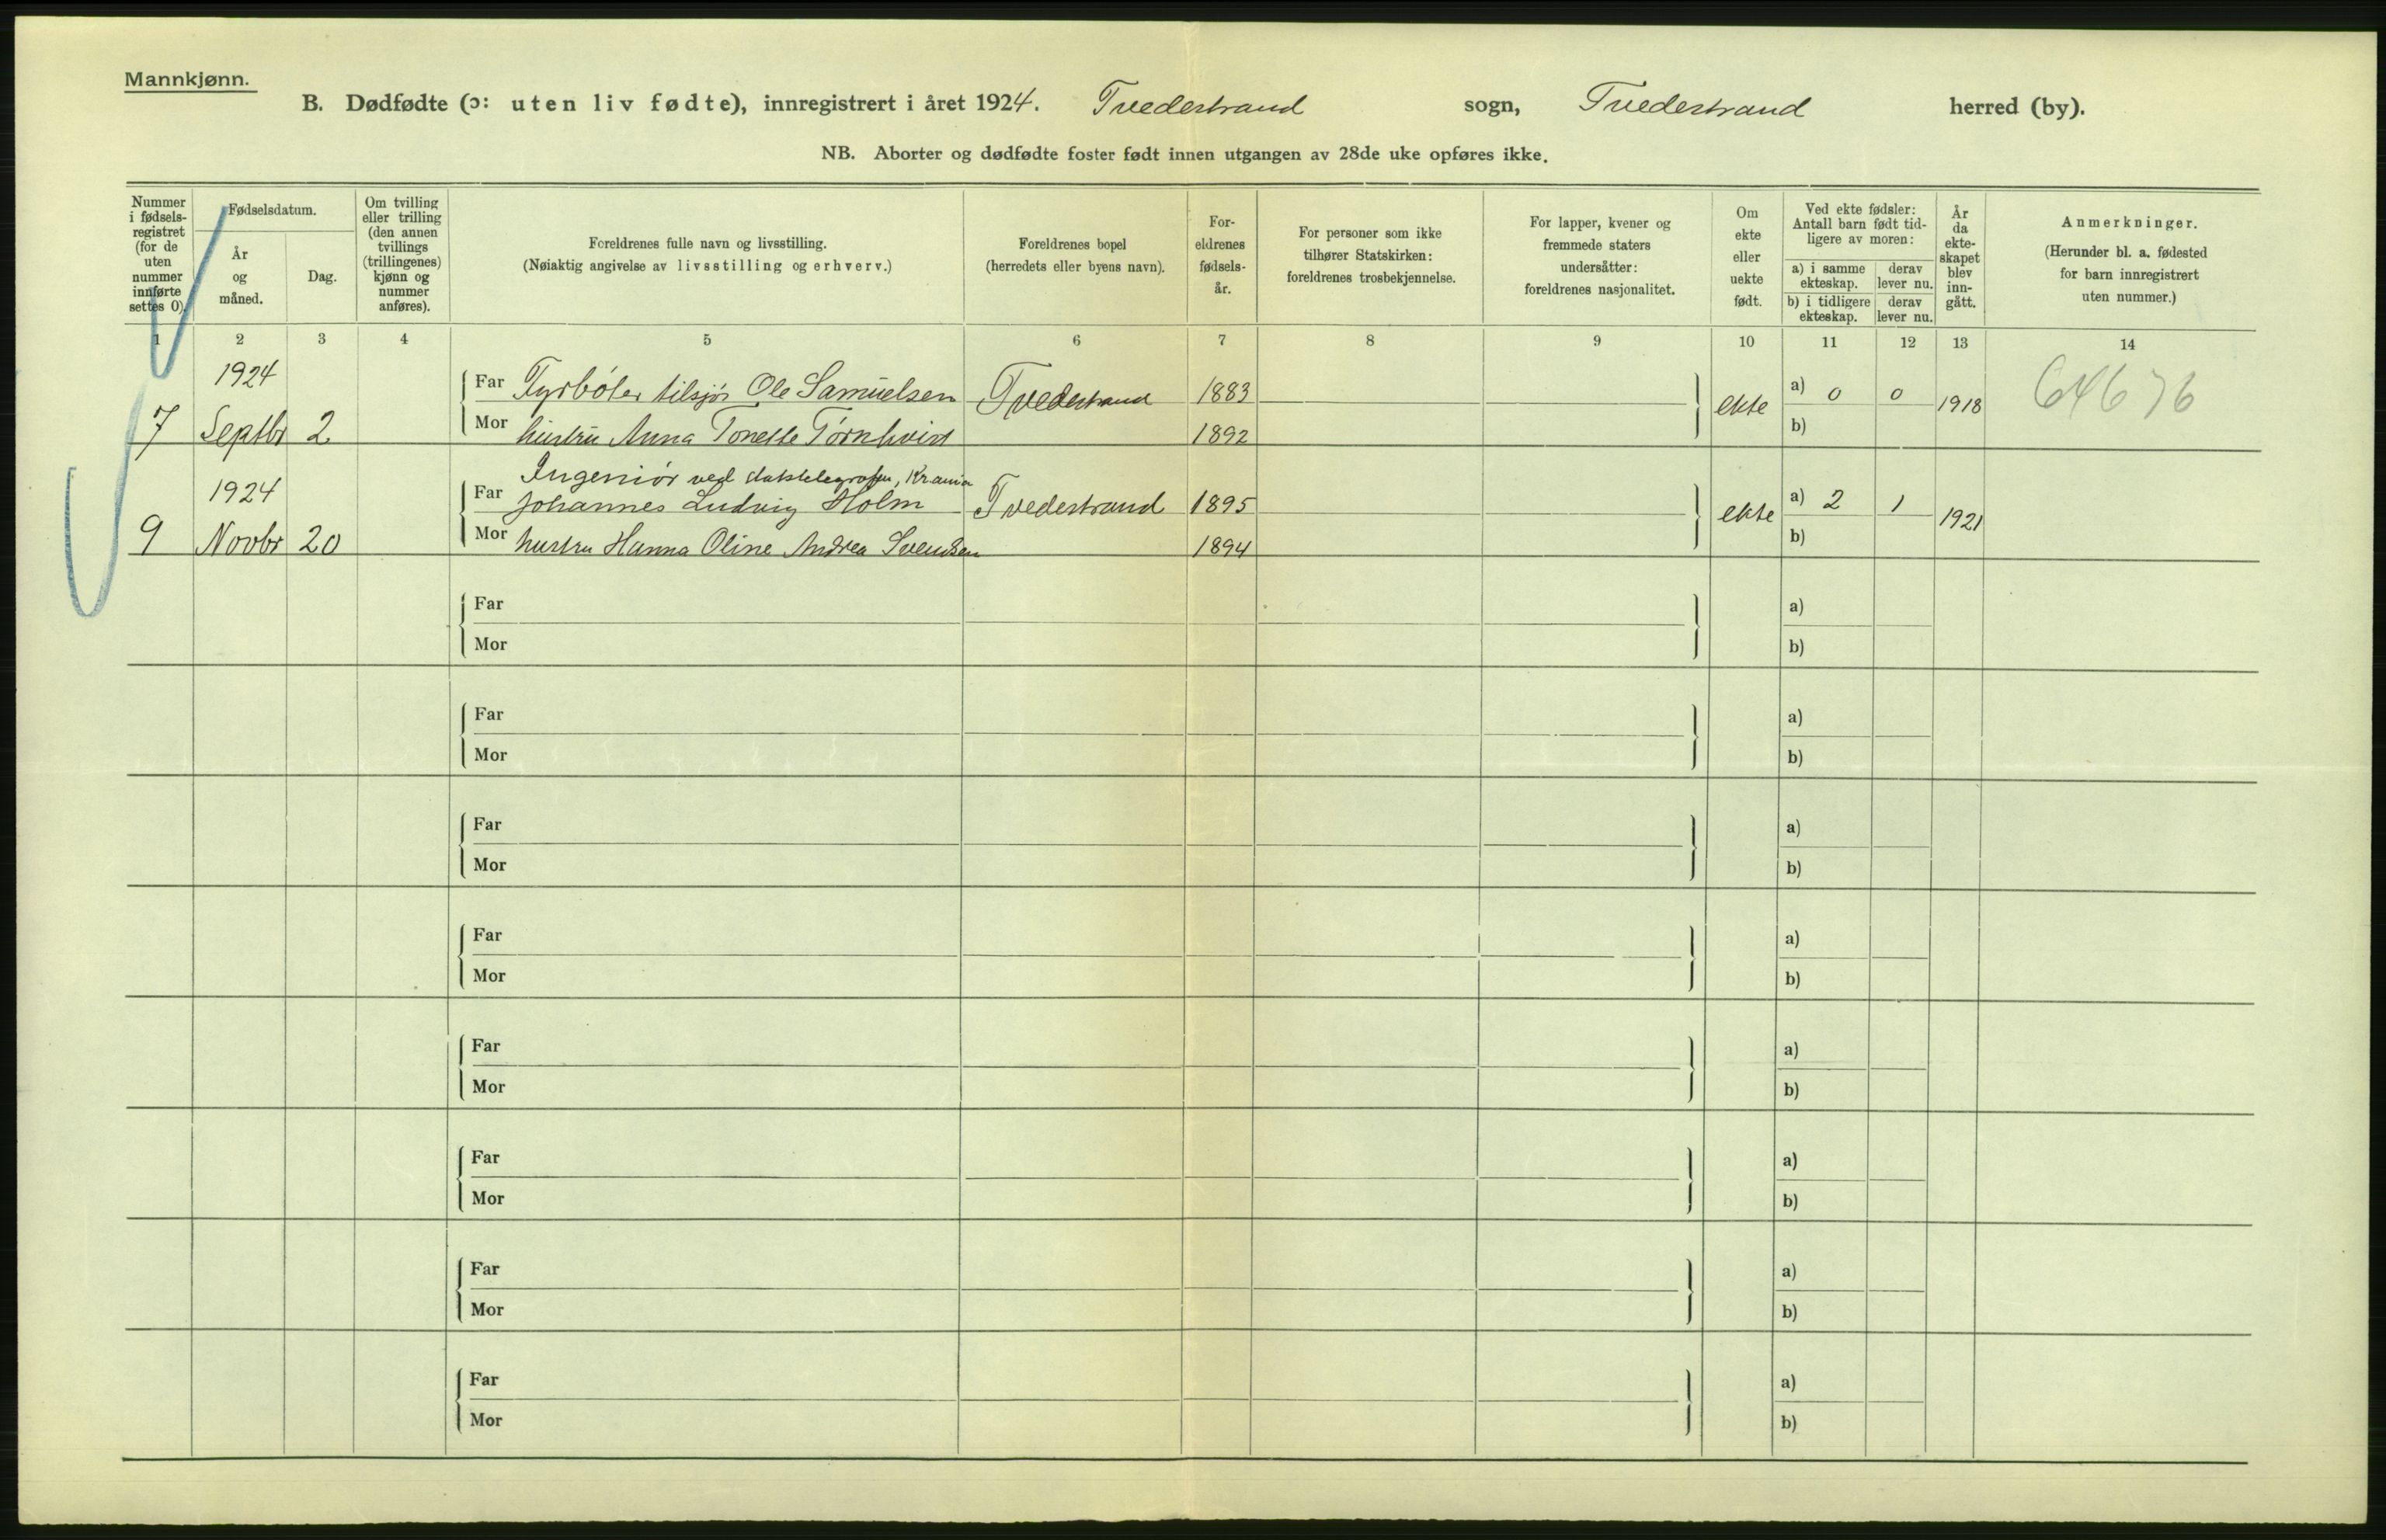 Mannkjønn.
B. Dødfødte (ɔ: uten liv fødte), innregistrert i året 1924. Tvedestrand sogn, Tvedestrand herred (by).
NB. Aborter og dødfødte foster født innen utgangen av 28de uke opføres ikke.
Nummer i fødsels-registret (for de uten nummer innførte settes 0).
Fødselsdatum.
År og måned.
Dag.
Om tvilling eller trilling (den annen tvillings (trillingenes) kjønn og nummer anføres).
Foreldrenes fulle navn og livsstilling.
(Nøiaktig angivelse av livsstilling og erhverv.)
Foreldrenes bopel
(herredets eller byens navn).
For-eldrenes fødsels-år.
For personer som ikke tilhører Statskirken: foreldrenes trosbekjennelse.
For lapper, kvener og fremmede staters undersåtter: foreldrenes nasjonalitet.
Om ekte eller uekte født.
Ved ekte fødsler: Antall barn født tid-ligere av moren:
a) i samme ekteskap.
derav lever nu.
b) i tidligere ekteskap.
derav lever nu.
År da ekte-skapet blev inn-gått.
Anmerkninger.
(Herunder bl. a. fødested for barn innregistrert uten nummer.)
1 2 3 4 5 6 7 8 9 10 11 12 13 14
1924
Far Fyrbøter tilsjøs Ole Samuelsen Tvedestrand 1883 ekte a) 0 0 1918 64676
7 Septbr 2 Mor hustru Anna Tonette 1892 b)
Ingeniør ved
1924 Far Johannes Ludvig Holm Tvedestrand 1895 ekte a) 2 1 1921
9 Novbr 20 Mor hustru Hanna Oline Andrea Svendsen 1894 b)
Far a)
Mor b)
Far a)
Mor b)
Far a)
Mor b)
Far a)
Mor b)
Far a)
Mor b)
Far a)
Mor b)
Far a)
Mor b)
Far a)
Mor b)